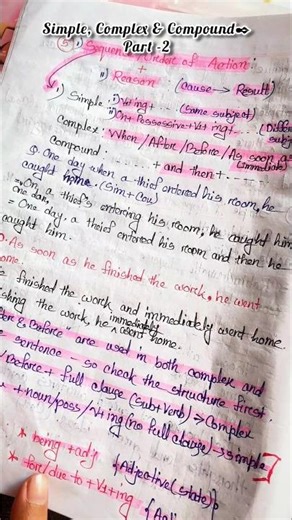 Simple, Complex & Compound✒
Part -2
⑤ i) Sequence/Order of Action:
+
ii) Reason (cause → Result)
i) Simple: i) V+ing+..... (same subject)
ii) On+Possessive+V+ing+.... (Diffe
subj
Complex: When/After/Before/As soon as
(immediate)
compound: ....... + and then + ......
Q. One day when a thief entered his room, he
caught home. (Sim+Cou)
= On a thief's entering his room, he caught him
one day.
= One day, a thief entered his room and then he
caught him.
Q. As soon as he finished the work, he went
home.
finished the work and immediately went home.
the work, he immediately went home.
& Before" are used in both complex and
sentence so check the structure first.
/Before + full clause (Sub+Verb) ⇒ Complex
+ noun/poss/V+ing (no full clause) → simple]
* being + adj {Adjective (state)}
* for/due to + V+ing {